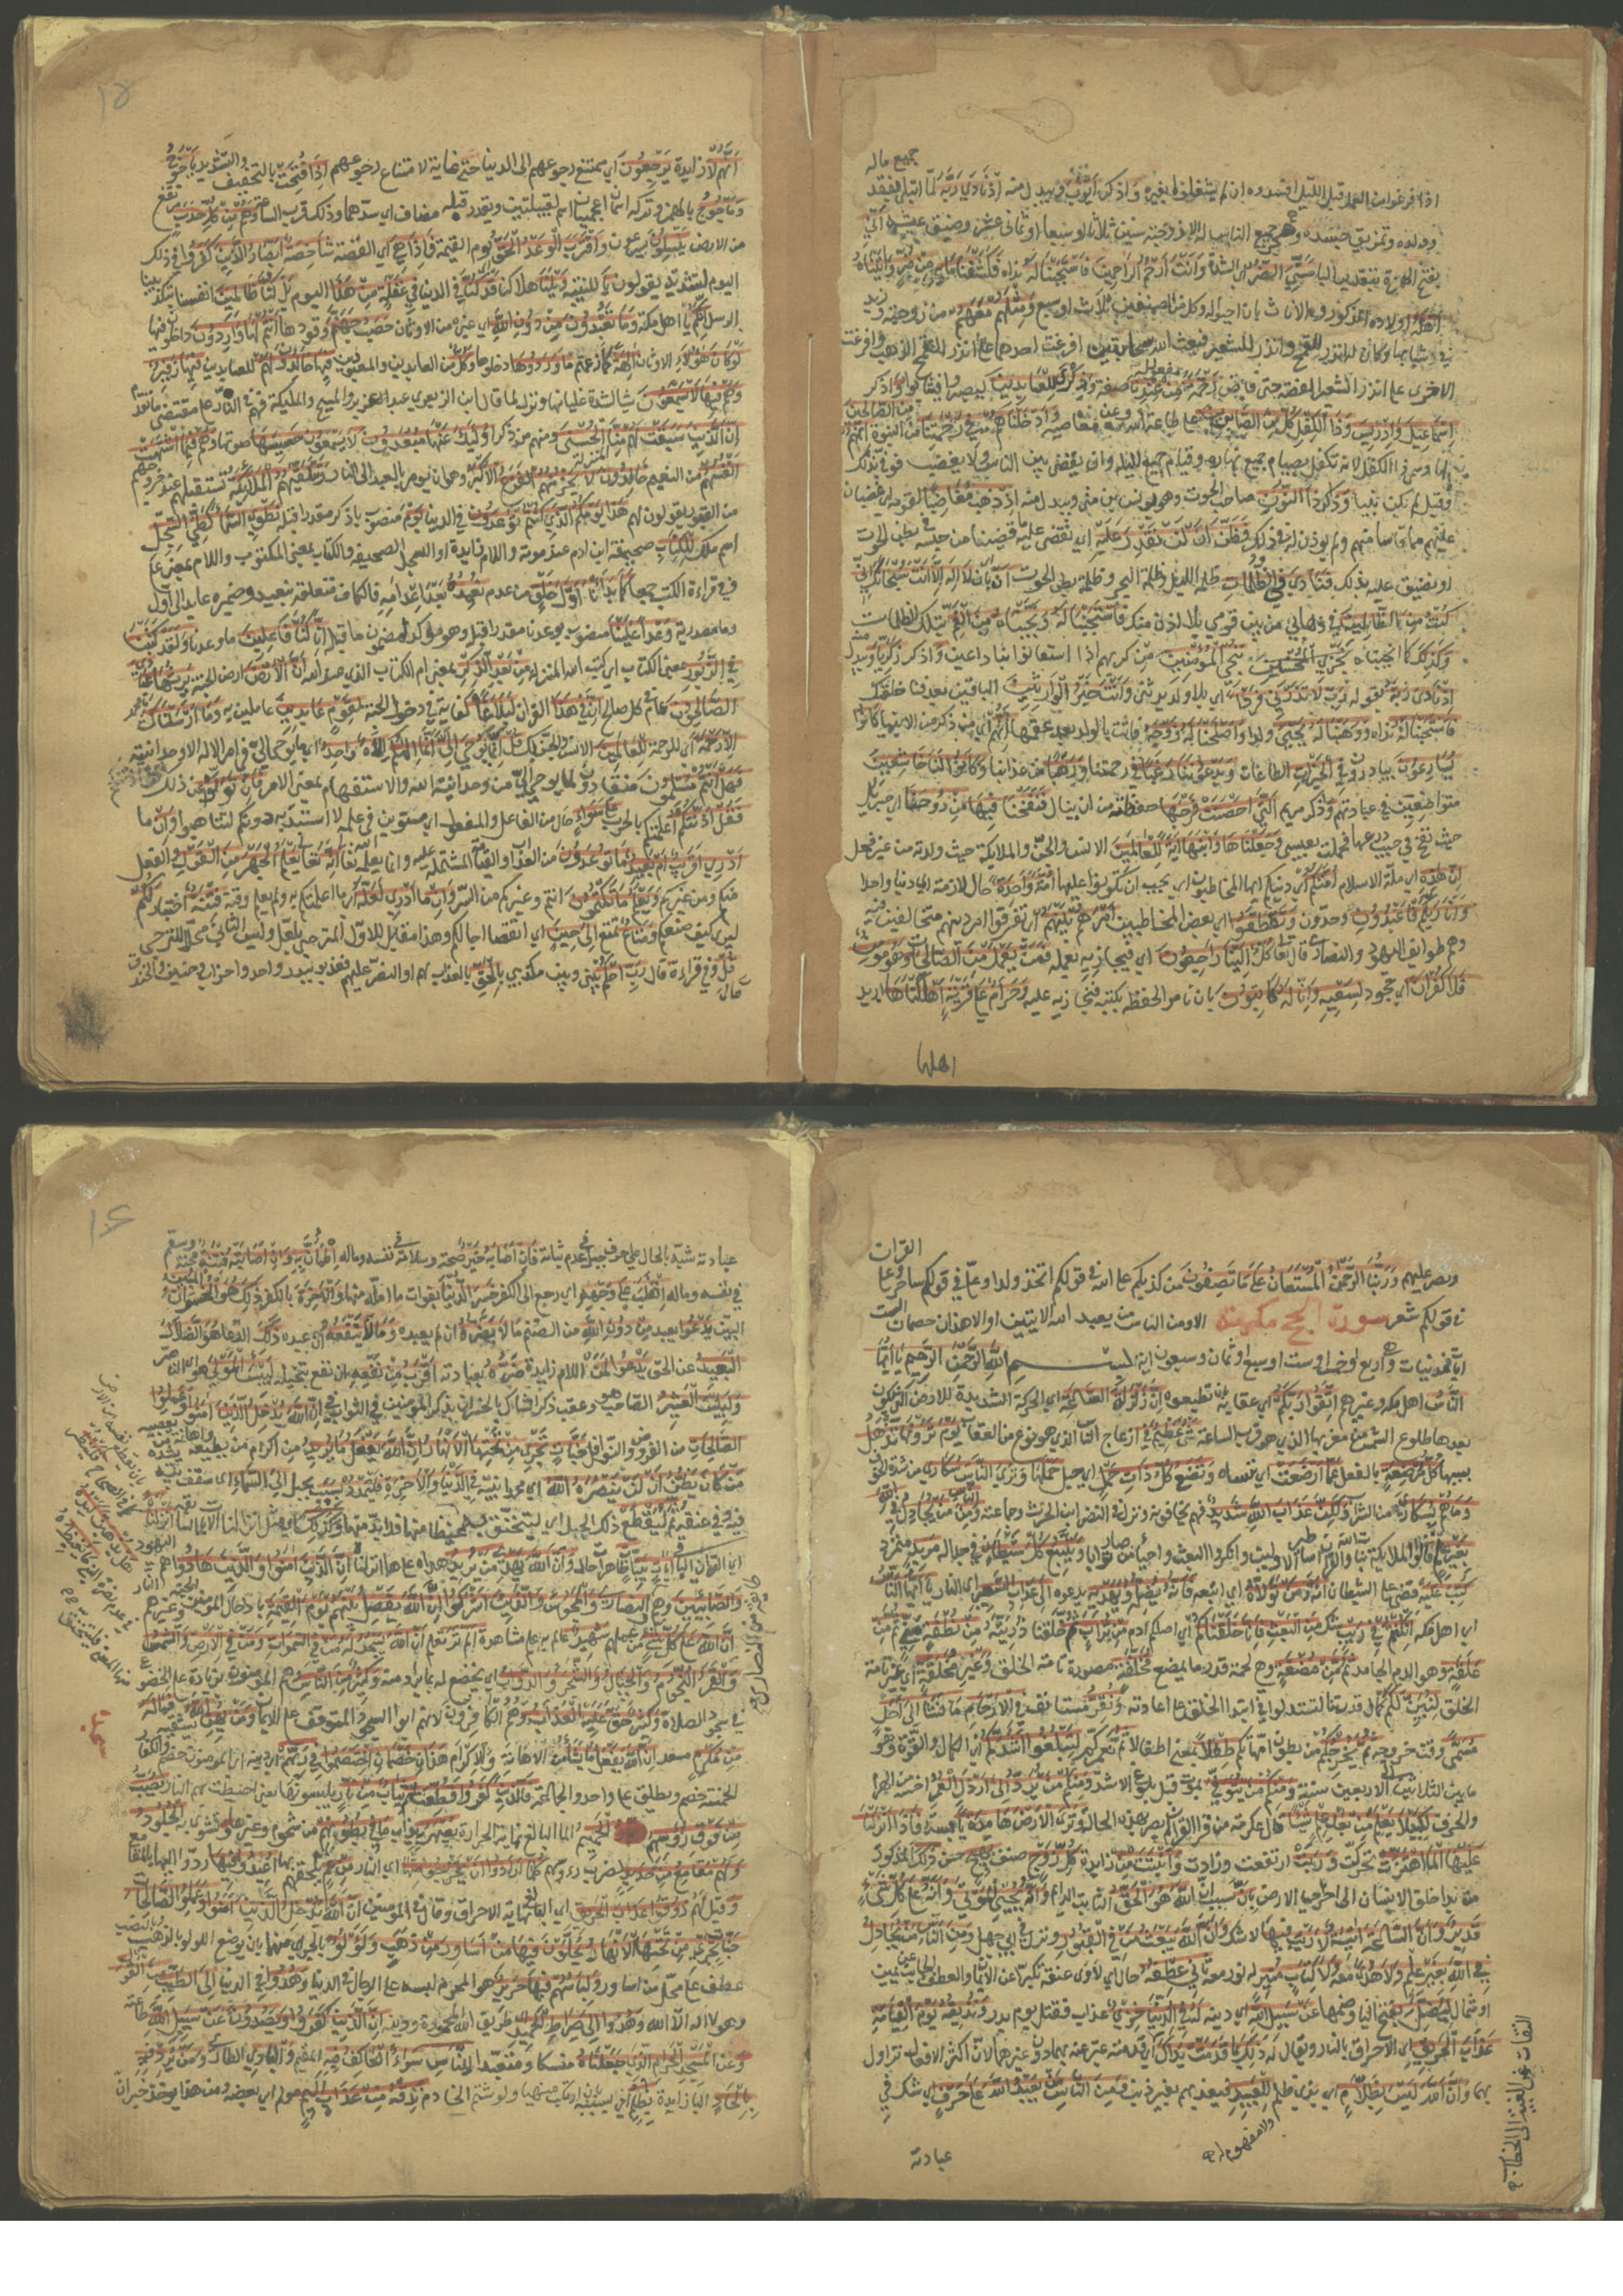 جميع ماله
اذا فرغوا من العمل قبل الليل افسدوه ان لم يشتغلوا بغيره وَاذكر اَيُّوْبَ ويبدل منه اِذْ نَادٰي رَبَّهُ لما ابتلي بفقد
وولده وتمزيق جسده وهجر جميع الناس له الا زوجته سنين ثلاثا او سبعا او ثماني عشر وضيق عيشه اَنِّيْ
بفتح الهمزة بتقدير الباء مَسَّنِيَ الضُّرُّ اي الشدة وَاَنْتَ اَرْحَمُ الرَّاحِمِيْنَ فَاسْتَجَبْنَا لَهُ نداءه فَكَشَفْنَا مَا بِهِ مِنْ ضُرٍّ وَاٰتَيْنَاهُ
اَهْلَهُ اولاده الذكور والاناث بان احيوا له وكل من الصنفين ثلاث او سبع وَمِثْلَهُمْ مَعَهُمْ من زوجته وزيد
في شبابها وكان له اندر للقمح واندر للشعير فبعث الله سحابتين افرغت احدهما علي اندر القمح الذهب وافرغت
الاخري علي اندر الشعير الفضة حتي فاض رَحْمَةً مفعول له مِنْ عِنْدِنَا صفة وَذِكْرٰي لِلْعَابِدِيْنَ ليصبروا فيثابوا وَاذكر
اِسْمٰعِيْلَ وَاِدْرِيْسَ وَذَا الْكِفْلِ كُلٌّ مِنَ الصَّابِرِيْنَ علي طاعة الله وعن معاصيه وَاَدْخَلْنَاهُمْ فِيْ رَحْمَتِنَا من النبوة اِنَّهُمْ مِنَ الصَّالِحِيْنَ
لها وسمي ذا الكفل لانه تكفل بصيام جميع نهاره وقيام جميع ليله وان يقضي بين الناس ولا يغضب فوفي بذلك
وقيل لم يكن نبيا وَذكر ذَا النُّوْنِ صاحب الحوت وهو يونس بن متي ويبدل منه اِذْ ذَهَبَ مُغَاضِبًا لقومه اي غضبان
عليهم مما قاسا منهم ولم يوذن له في ذلك فَظَنَّ اَنْ لَنْ نَقْدِرَ عَلَيْهِ اي نقضي عليه قضينا من حبسه في بطن الحوت
او نضيق عليه بذلك فَنَادٰي فِي الظُّلُمَاتِ ظلمة الليل وظلمة البحر وظلمة بطن الحوت اَنْ بان لَا اِلٰهَ اِلَّا اَنْتَ سُبْحَانَكَ اِنِّيْ
كُنْتُ مِنَ الظَّالِمِيْنَ في ذهابي من بين قومي بلا اذن منك فَاسْتَجَبْنَا لَهُ وَنَجَّيْنَاهُ مِنَ الْغَمِّ بتلك الظلمات
وَكَذٰلِكَ كما انجيناه نُنْجِي الْمُؤْمِنِيْنَ من كربهم اذا استغاثوا بنا داعين وَاذكر زَكَرِيَّا ويبدل منه
اِذْ نَادٰي رَبَّهُ بقوله رَبِّ لَا تَذَرْنِيْ فَرْدًا اي بلا ولد يرثني وَاَنْتَ خَيْرُ الْوَارِثِيْنَ الباقين بعد فناء خلقك
فَاسْتَجَبْنَا لَهُ نداءه وَوَهَبْنَا لَهُ يَحْيٰي ولدا وَاَصْلَحْنَا لَهُ زَوْجَهُ فاتت بالولد بعد عقمها اِنَّهُمْ اي من ذكر من الانبياء كَانُوْا
يُسَارِعُوْنَ يبادرون فِي الْخَيْرَاتِ الطاعات وَيَدْعُوْنَنَا رَغَبًا في رحمتنا وَرَهَبًا من عذابنا وَكَانُوْا لَنَا خَاشِعِيْنَ
متواضعين في عبادتهم وَاذكر مريم الَّتِيْ اَحْصَنَتْ فَرْجَهَا حفظته من ان ينال فَنَفَخْنَا فِيْهَا مِنْ رُوْحِنَا اي جبريل
حيث نفخ في جيب درعها فحملت بعيسي وَجَعَلْنَاهَا وَابْنَهَا اٰيَةً لِلْعَالَمِيْنَ الانس والجن والملايكة حيث ولدته من غير فحل
اِنَّ هٰذِهِ اي ملة الاسلام اُمَّتُكُمْ دينكم ايها المخاطبون اي يجب ان تكونوا عليها اُمَّةً وَاحِدَةً حال لازمة اي دينا واحدا
وَاَنَا رَبُّكُمْ فَاعْبُدُوْنِ وحدون وَتَقَطَّعُوْا اي بعض المخاطبين اَمْرَهُمْ بَيْنَهُمْ اي تفرقوا امر دينهم متخالفين فيه
وهم طوايف اليهود والنصاري قال تعا كُلٌّ اِلَيْنَا رَاجِعُوْنَ اي فنجازيه بعمله فَمَنْ يَعْمَلْ مِنَ الصَّالِحَاتِ وَهُوَ مُؤْمِنٌ
فَلَا كُفْرَانَ اي جحود لِسَعْيِهِ وَاِنَّا لَهُ كَاتِبُوْنَ بان نامر الحفظة بكتبه فنجازيه عليه وَحَرَامٌ عَلٰي قَرْيَةٍ اَهْلَكْنَاهَا اريد
اهلها
١٥
اَنَّهُمْ لَا زايدة يَرْجِعُوْنَ اي ممتنع رجوعهم الي الدنيا حَتّٰي غاية لامتناع رجوعهم اِذَا فُتِحَتْ بالتخفيف والتشديد يَاْجُوْجُ
وَمَاْجُوْجُ بالهمز وتركه اسمان اعجميان اسم لقبيلتين ويقدر قبله مضاف اي سدهما وذلك قرب الساعة وَهُمْ مِنْ كُلِّ حَدَبٍ مرتفع
من الارض يَنْسِلُوْنَ يسرعون وَاقْتَرَبَ الْوَعْدُ الْحَقُّ يوم القيمة فَاِذَا هِيَ اي القصة شَاخِصَةٌ اَبْصَارُ الَّذِيْنَ كَفَرُوْا في ذلك
اليوم لشدته يقولون يَا للتنبيه وَيْلَنَا هلاكنا قَدْ كُنَّا في الدنيا فِيْ غَفْلَةٍ مِنْ هٰذَا اليوم بَلْ كُنَّا ظَالِمِيْنَ انفسنا بتكذيبنا
الرسل اِنَّكُمْ يا اهل مكة وَمَا تَعْبُدُوْنَ مِنْ دُوْنِ اللهِ اي غيره من الاوثان حَصَبُ جَهَنَّمَ وقودها اَنْتُمْ لَهَا وَارِدُوْنَ داخلون فيها
لَوْ كَانَ هٰؤُلَاءِ الاوثان اٰلِهَةً كما زعمتم مَا وَرَدُوْهَا دخلوها وَكُلٌّ من العابدين والمعبودين فِيْهَا خَالِدُوْنَ لَهُمْ للعابدين فِيْهَا زَفِيْرٌ
وَهُمْ فِيْهَا لَا يَسْمَعُوْنَ شيا لشدة غليانها ونزل لما قال ابن الزبعري عبد العزير والمسيح والمليكة فهم في النار علي مقتضي ما تقدم
اِنَّ الَّذِيْنَ سَبَقَتْ لَهُمْ مِنَّا المنزلة الْحُسْنٰي ومنهم من ذكر اُولٰئِكَ عَنْهَا مُبْعَدُوْنَ لَا يَسْمَعُوْنَ حَسِيْسَهَا صوتها وَهُمْ فِيْمَا اشْتَهَتْ
اَنْفُسُهُمْ من النعيم خَالِدُوْنَ لَا يَحْزُنُهُمُ الْفَزَعُ الْاَكْبَرُ وهو ان يومر بالعبد الي النار وَتَتَلَقّٰهُمُ الْمَلَائِكَةُ تستقبلهم عند خروجهم
من القبور يقولون لهم هٰذَا يَوْمُكُمُ الَّذِيْ كُنْتُمْ تُوْعَدُوْنَ في الدنيا يَوْمَ منصوب باذكر مقدرا قبله نَطْوِي السَّمَاءَ كَطَيِّ السِّجِلِّ
اسم ملك لِلْكِتَابِ صحيفة ابن ادم عند موته واللام زايدة او السجل الصحيفة والكتاب بمعني المكتوب واللام بمعني علي
وفي قراءة للكتب جمعا كَمَا بَدَاْنَا اَوَّلَ خَلْقٍ من عدم نُعِيْدُهُ بعد اعدامه فالكاف متعلقة بنعيد وضميره عايد الي اول
وما مصدرية وَعْدًا عَلَيْنَا منصوب بوعدنا مقدرا قبله وهو موكد لمضمون ما قبله اِنَّا كُنَّا فَاعِلِيْنَ ما وعدنا وَلَقَدْ كَتَبْنَا
فِي الزَّبُوْرِ بمعني الكتاب اي كتب الله المنزلة مِنْ بَعْدِ الذِّكْرِ بمعني ام الكتاب الذي عند الله اَنَّ الْاَرْضَ ارض الجنة يَرِثُهَا عِبَادِيَ
الصَّالِحُوْنَ عام في كل صالح اِنَّ فِيْ هٰذَا القران لَبَلَاغًا كفاية في دخول الجنة لِقَوْمٍ عَابِدِيْنَ عاملين به وَمَا اَرْسَلْنَاكَ يا محمد
اِلَّا رَحْمَةً اي للرحمة لِلْعَالَمِيْنَ الانس والجن بك قُلْ اِنَّمَا يُوْحٰي اِلَيَّ اَنَّمَا اِلٰهُكُمْ اِلٰهٌ وَاحِدٌ اي ما يوحي الي في امر الاله الا وحدانيته
فَهَلْ اَنْتُمْ مُسْلِمُوْنَ منقادون لما يوحي الي من وحدانية الله والاستفهام بمعني الامر فَاِنْ تَوَلَّوْا عن ذلك
فَقُلْ اٰذَنْتُكُمْ اعلمتكم بالحرب عَلٰي سَوَاءٍ حال من الفاعل والمفعول اي مستوين في علمه لا استبد به دونكم لتتاهبوا وَاِنْ ما
اَدْرِيْ اَقَرِيْبٌ اَمْ بَعِيْدٌ مَا تُوْعَدُوْنَ من العذاب او القيمة المشتملة عليه وانما يعلمه الله تعا اِنَّهُ تعالي يَعْلَمُ الْجَهْرَ مِنَ الْقَوْلِ والفعل
منكم ومن غيركم وَيَعْلَمُ مَا تَكْتُمُوْنَ انتم وغيركم من السر وَاِنْ ما اَدْرِيْ لَعَلَّهُ اي ما اعلمتكم به ولم يعلم وقته فِتْنَةٌ اختبار لَكُمْ
ليري كيف صنعكم وَمَتَاعٌ تمتع اِلٰي حِيْنٍ اي انقضاء اجالكم وهذا مقابل للاول المترجي بلعل وليس الثاني محلا للترجي
قُلْ وفي قراءة قال رَبِّ احْكُمْ بيني وبين مكذبي بِالْحَقِّ بالعذاب لهم او النصر عليهم فعذبوا ببدر واحد واحزاب وحنين والخندق
ونصر عليهم وَرَبُّنَا الرَّحْمٰنُ الْمُسْتَعَانُ عَلٰي مَا تَصِفُوْنَ من كذبكم علي الله في قولكم اتخذ ولدا وعليّ في قولكم ساحر وعلي القران
في قولكم شعر سورة الحج مكية الا ومن الناس من يعبد الله الايتين او الا هذان خصمان الست
ايات فمدنيات وهي اربع او خمس او ست او سبع او ثمان وسبعون اية بِسْمِ اللهِ الرَّحْمٰنِ الرَّحِيْمِ يَا اَيُّهَا
النَّاسُ اهل مكة وغيرهم اتَّقُوْا رَبَّكُمْ اي عقابه بان تطيعوه اِنَّ زَلْزَلَةَ السَّاعَةِ اي الحركة الشديدة للارض التي يكون
بعدها طلوع الشمس من مغربها الذي هو قرب الساعة شَيْءٌ عَظِيْمٌ في ازعاج الناس الذي هو نوع من العقاب يَوْمَ تَرَوْنَهَا تَذْهَلُ
بسببها كُلُّ مُرْضِعَةٍ بالفعل عَمَّا اَرْضَعَتْ اي تنساه وَتَضَعُ كُلُّ ذَاتِ حَمْلٍ اي حبلي حَمْلَهَا وَتَرَي النَّاسَ سُكَارٰي من شدة الخوف
وَمَا هُمْ بِسُكَارٰي من الشراب وَلٰكِنَّ عَذَابَ اللهِ شَدِيْدٌ فهم يخافونه ونزل في النضر ابن الحرث وجماعته وَمِنَ النَّاسِ مَنْ يُجَادِلُ فِي اللهِ
بِغَيْرِ عِلْمٍ قالوا الملايكة بنات الله والقران اساطير الاولين وانكروا البعث واحياء من صار ترابا وَيَتَّبِعُ كُلَّ شَيْطَانٍ في جداله مَرِيْدٍ متمرد
كُتِبَ عَلَيْهِ قضي علي الشيطان اَنَّهُ مَنْ تَوَلَّاهُ اي اتبعه فَاَنَّهُ يُضِلُّهُ وَيَهْدِيْهِ يدعوه اِلٰي عَذَابِ السَّعِيْرِ اي النار يَا اَيُّهَا النَّاسُ
اي اهل مكة اِنْ كُنْتُمْ فِيْ رَيْبٍ شك مِنَ الْبَعْثِ فَاِنَّا خَلَقْنَاكُمْ اي اصلكم ادم مِنْ تُرَابٍ ثُمَّ خلقنا ذريته مِنْ نُطْفَةٍ مني ثُمَّ مِنْ
عَلَقَةٍ وهو الدم الجامد ثُمَّ مِنْ مُضْغَةٍ وهي لحمة قدر ما يمضغ مُخَلَّقَةٍ مصورة تامة الخلق وَغَيْرِ مُخَلَّقَةٍ اي غير تامة
الخلق لِنُبَيِّنَ لَكُمْ كمال قدرتنا لتستدلوا في ابتداء الخلق علي اعادته وَنُقِرُّ مستانف فِي الْاَرْحَامِ مَا نَشَاءُ اِلٰي اَجَلٍ
مُسَمًّي وقت خروجه ثُمَّ نُخْرِجُكُمْ من بطون امهاتكم طِفْلًا بمعني اطفالا ثُمَّ نعمركم لِتَبْلُغُوْا اَشُدَّكُمْ اي الكمال والقوة وهو
ما بين الثلاثين الي الاربعين سنة وَمِنْكُمْ مَنْ يُتَوَفّٰي يموت قبل بلوغ الاشد وَمِنْكُمْ مَنْ يُرَدُّ اِلٰي اَرْذَلِ الْعُمُرِ اخسه من الهرم
والخرف لِكَيْلَا يَعْلَمَ مِنْ بَعْدِ عِلْمٍ شَيْئًا قال عكرمة من قرا القران لم يصر بهذه الحالة وَتَرَي الْاَرْضَ هَامِدَةً يابسة فَاِذَا اَنْزَلْنَا
عَلَيْهَا الْمَاءَ اهْتَزَّتْ تحركت وَرَبَتْ ارتفعت وزادت وَاَنْبَتَتْ مِنْ زايدة كُلِّ زَوْجٍ صنف بَهِيْجٍ حسن ذٰلِكَ المذكور
من بدء خلق الانسان الي اخر احياء الارض بِاَنَّ بسبب ان اللهَ هُوَ الْحَقُّ الثابت الدايم وَاَنَّهُ يُحْيِي الْمَوْتٰي وَاَنَّهُ عَلٰي كُلِّ شَيْءٍ
قَدِيْرٌ وَاَنَّ السَّاعَةَ اٰتِيَةٌ لَا رَيْبَ فِيْهَا لا شك وَاَنَّ اللهَ يَبْعَثُ مَنْ فِي الْقُبُوْرِ ونزل في ابي جهل وَمِنَ النَّاسِ مَنْ يُجَادِلُ
فِي اللهِ بِغَيْرِ عِلْمٍ وَلَا هُدًي معه وَلَا كِتَابٍ مُنِيْرٍ له نور معه ثَانِيَ عِطْفِهِ حال اي لاوي عنقه تكبرا عن الايمان والعطف الجانب عن يمين
او شمال لِيُضِلَّ بفتح الياء وضمها عَنْ سَبِيْلِ اللهِ اي دينه لَهُ فِي الدُّنْيَا خِزْيٌ عذاب فقتل يوم بدر وَنُذِيْقُهُ يَوْمَ الْقِيَامَةِ
عَذَابَ الْحَرِيْقِ اي الاحراق بالنار ويقال له ذٰلِكَ بِمَا قَدَّمَتْ يَدَاكَ اي قدمته عبر عنه بهما دون غيرهما لان اكثر الافعال تزاول
بهما وَاَنَّ اللهَ لَيْسَ بِظَلَّامٍ اي بذي ظلم لِلْعَبِيْدِ فيعذبهم بغير ذنب وَمِنَ النَّاسِ مَنْ يَعْبُدُ اللهَ عَلٰي حَرْفٍ اي شك في
عبادته
التفات عن الغيبة الي الخطاب
١٦
عبادته شبه بالحال علي حرف جبل في عدم ثباته فَاِنْ اَصَابَهُ خَيْرٌ صحة وسلامة في نفسه وماله اطْمَاَنَّ بِهِ وَاِنْ اَصَابَتْهُ فِتْنَةٌ محنة وسقم
في نفسه وماله انْقَلَبَ عَلٰي وَجْهِهِ اي رجع الي الكفر خَسِرَ الدُّنْيَا بفوات ما امله منها وَالْاٰخِرَةَ بالكفر ذٰلِكَ هُوَ الْخُسْرَانُ الْمُبِيْنُ
البين يَدْعُوْا يعبد مِنْ دُوْنِ اللهِ من الصنم مَا لَا يَضُرُّهُ ان لم يعبده وَمَا لَا يَنْفَعُهُ ان عبده ذٰلِكَ الدعاء هُوَ الضَّلَالُ
الْبَعِيْدُ عن الحق يَدْعُوْا لَمَنْ اللام زايدة ضَرُّهُ بعبادته اَقْرَبُ مِنْ نَفْعِهِ ان نفع بتخيله لَبِئْسَ الْمَوْلٰي هو الناصر
وَلَبِئْسَ الْعَشِيْرُ الصاحب هو وعقب ذكر الشاك بالخسران بذكر المومنين في الثواب في اِنَّ اللهَ يُدْخِلُ الَّذِيْنَ اٰمَنُوْا وَعَمِلُوا
الصَّالِحَاتِ من الفروض والنوافل جَنَّاتٍ تَجْرِيْ مِنْ تَحْتِهَا الْاَنْهَارُ اِنَّ اللهَ يَفْعَلُ مَا يُرِيْدُ من اكرام من يطيعه واهانة من يعصيه
مَنْ كَانَ يَظُنُّ اَنْ لَنْ يَنْصُرَهُ اللهُ اي محمدا نبيه فِي الدُّنْيَا وَالْاٰخِرَةِ فَلْيَمْدُدْ بِسَبَبٍ بحبل اِلَي السَّمَاءِ اي سقف بيته يشده
فيه وفي عنقه ثُمَّ لْيَقْطَعْ
اي القران الباقي اٰيَاتٍ بَيِّنَاتٍ ظاهرات حال وَاَنَّ اللهَ يَهْدِيْ مَنْ يُرِيْدُ هداه اِنَّ الَّذِيْنَ اٰمَنُوْا وَالَّذِيْنَ هَادُوْا هم اليهود
وَالصَّابِئِيْنَ وَالنَّصَارٰي وَالْمَجُوْسَ وَالَّذِيْنَ اَشْرَكُوْا اِنَّ اللهَ يَفْصِلُ بَيْنَهُمْ يَوْمَ الْقِيٰمَةِ بادخال المومنين الجنة وغيرهم النار
اِنَّ اللهَ عَلٰي كُلِّ شَيْءٍ من عملهم شَهِيْدٌ عالم به علم مشاهدة اَلَمْ تَرَ تعلم اَنَّ اللهَ يَسْجُدُ لَهُ مَنْ فِي السَّمٰوَاتِ وَمَنْ فِي الْاَرْضِ وَالشَّمْسُ
وَالْقَمَرُ وَالنُّجُوْمُ وَالْجِبَالُ وَالشَّجَرُ وَالدَّوَابُّ اي يخضع له بما يراد منه وَكَثِيْرٌ مِنَ النَّاسِ وهم المومنون بزيادة علي الخضوع
في سجود الصلاة وَكَثِيْرٌ حَقَّ عَلَيْهِ الْعَذَابُ وهم الكافرون لانهم ابوا السجود المتوقف علي الايمان وَمَنْ يُهِنِ اللهُ يشقه فَمَا لَهُ
مِنْ مُكْرِمٍ مسعد اِنَّ اللهَ يَفْعَلُ مَا يَشَاءُ من الاهانة والاكرام هٰذَانِ خَصْمَانِ اخْتَصَمُوْا فِيْ رَبِّهِمْ اي دينه اي المومنون خصم والكفار
الخمسة خصم ويطلق علي الواحد والجماعة فَالَّذِيْنَ كَفَرُوْا قُطِّعَتْ لَهُمْ ثِيَابٌ مِنْ نَارٍ يلبسونها يعني احيطت بهم النار يُصَبُّ
مِنْ فَوْقِ رُءُوْسِهِمُ الْحَمِيْمُ الماء البالغ نهاية الحرارة يُصْهَرُ يذاب بِهِ مَا فِيْ بُطُوْنِهِمْ من شحوم وغيرها وَتشوي به الْجُلُوْدُ
وَلَهُمْ مَقَامِعُ مِنْ حَدِيْدٍ لضرب رءوسهم كُلَّمَا اَرَادُوْا اَنْ يَخْرُجُوْا مِنْهَا اي النار مِنْ غَمٍّ يلحقهم بها اُعِيْدُوْا فِيْهَا ردوا اليها بالمقامع
وَقيل لهم ذُوْقُوْا عَذَابَ الْحَرِيْقِ اي البالغ نهاية الاحراق وقال في المومنين اِنَّ اللهَ يُدْخِلُ الَّذِيْنَ اٰمَنُوْا وَعَمِلُوا الصَّالِحَاتِ
جَنَّاتٍ تَجْرِيْ مِنْ تَحْتِهَا الْاَنْهَارُ يُحَلَّوْنَ فِيْهَا مِنْ اَسَاوِرَ مِنْ ذَهَبٍ وَلُؤْلُؤٍ بالجر اي منهما بان يرصع اللولو بالذهب وبالنصب
عطف علي محل من اساور وَلِبَاسُهُمْ فِيْهَا حَرِيْرٌ هو المحرم لبسه علي الرجال في الدنيا وَهُدُوْا في الدنيا اِلَي الطَّيِّبِ مِنَ الْقَوْلِ
وهو لا اله الا الله وَهُدُوْا اِلٰي صِرَاطِ الْحَمِيْدِ طريق الله المحمودة ودينه اِنَّ الَّذِيْنَ كَفَرُوْا وَيَصُدُّوْنَ عَنْ سَبِيْلِ اللهِ طاعته
وَعن الْمَسْجِدِ الْحَرَامِ الَّذِيْ جَعَلْنَاهُ منسكا ومتعبدا لِلنَّاسِ سَوَاءً الْعَاكِفُ فِيْهِ المقيم وَالْبَادِ الطاري وَمَنْ يُرِدْ فِيْهِ
بِاِلْحَادٍ الباء زايدة بِظُلْمٍ اي بسببه بان ارتكب منهيا ولو شتم الخادم نُذِقْهُ مِنْ عَذَابٍ اَلِيْمٍ مولم اي بعضه ومن هذا يوخذ خبر ان